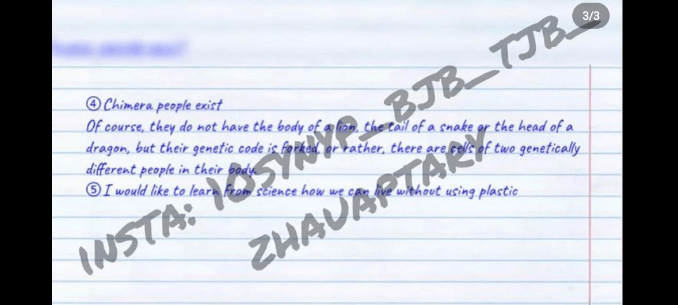 3/3
④ Chimera people exist
Of course, they do not have the body of a lion, the tail of a snake or the head of a
dragon, but their genetic code is forked, or rather, there are cells of two genetically
different people in their body.
⑤ I would like to learn from science how we can live without using plastic
INSTA: 10SYNYP_BJB_TJB_
ZHAUAPTARY